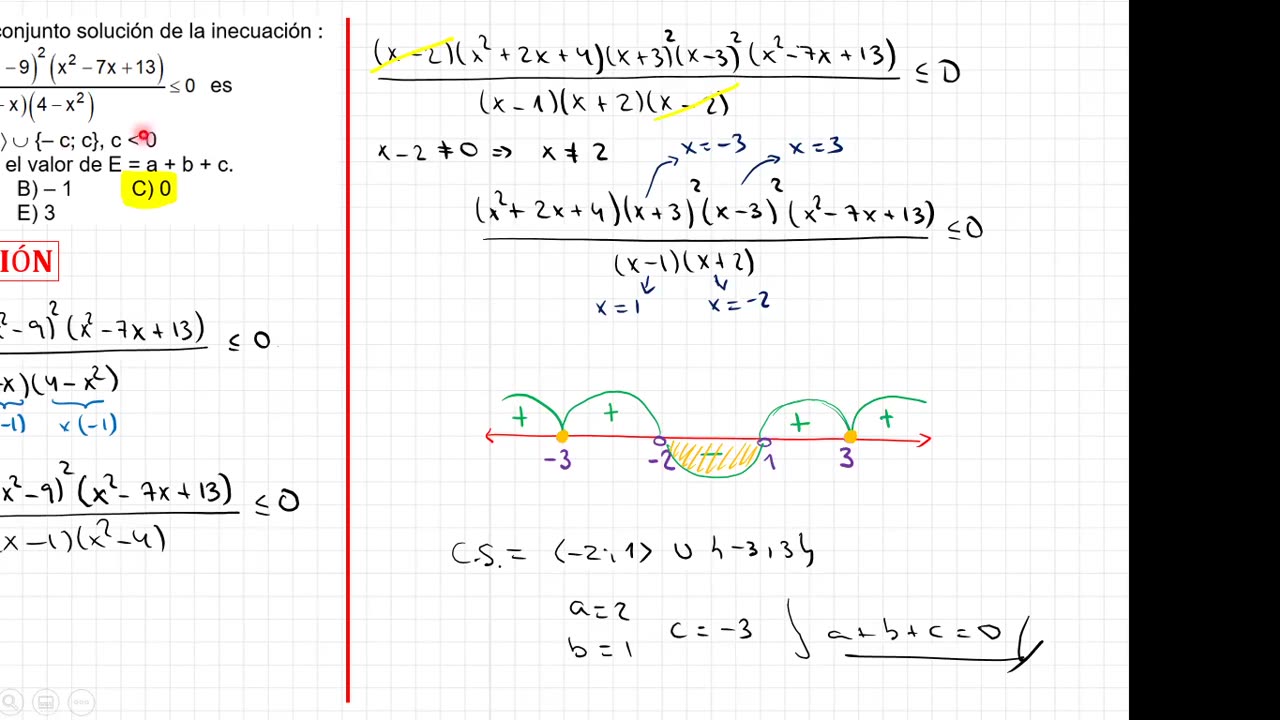 conjunto solución de la inecuación :
-9)²(x² – 7x + 13)
-x)(4 – x²)
≤ 0 es
⟩ ∪ {– c; c}, c < 0
el valor de E = a + b + c.
B) – 1
C) 0
E) 3
IÓN
x²-9)²(x²-7x+13)
≤ 0
x)(4-x²)
-1) x(-1)
x²-9)²(x²-7x+13)
≤0
x-1)(x²-4)
(x-2)(x²+2x+4)(x+3)²(x-3)²(x²-7x+13)
≤0
(x-1)(x+2)(x-2)
x-2≠0 ⇒ x≠2
x=-3
x=3
(x²+2x+4)(x+3)²(x-3)²(x²-7x+13)
≤0
(x-1)(x+2)
x=1
x=-2
+ + - + +
-3 -2 1 3
C.S.= ⟨-2;1⟩ ∪ {-3;3}
a=2
b=1
c=-3
a+b+c=0